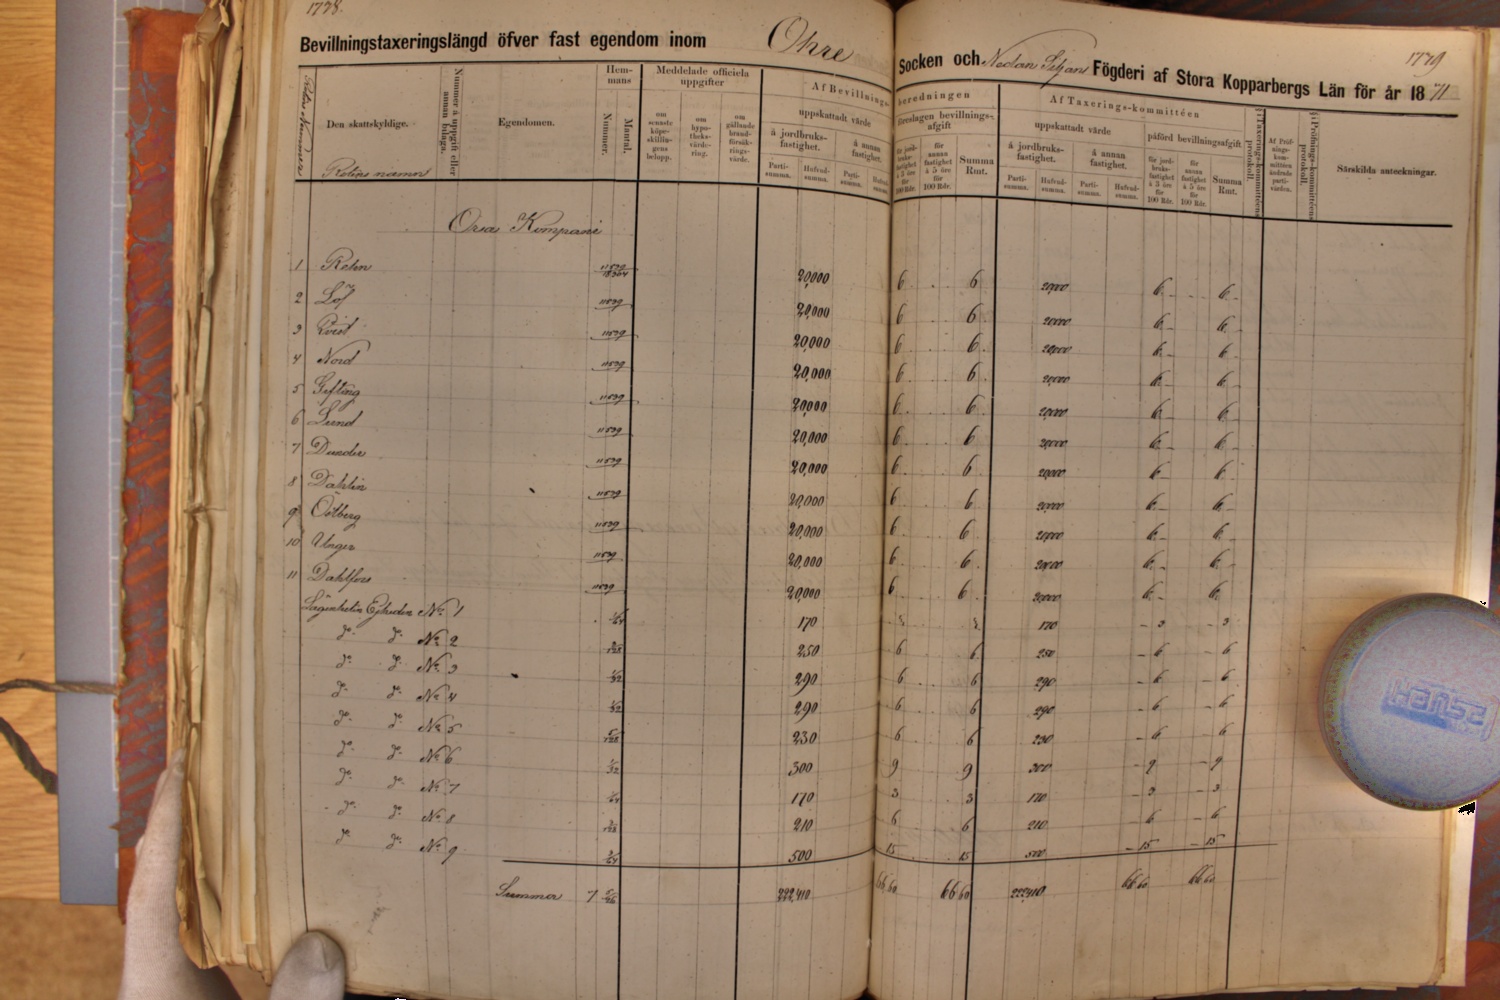 1778.
Bevillningstaxeringslängd öfver fast egendom inom Ohre
Socken och Nedan Siljans Fögderi af Stora Kopparbergs Län för år 1871
1779
Den skattskyldige.
Rotens namn
Nummer å uppgift eller annan bilaga.
Egendomen.
Hemmans
Nummer.
Mantal.
Meddelade officiela uppgifter
om senaste köpeskillingens belopp.
om hypotheksvärdering.
om gällande brandförsäkringsvärde.
Af Bevillnings-
beredningen
uppskattadt värde
å jordbruksfastighet.
å annan fastighet.
Partisumma.
Hufvudsumma.
Partisumma.
föreslagen bevillningsafgift
för jordbruksfastighet à 3 öre för 100 Rdr.
för annan fastighet à 5 öre för 100 Rdr.
Summa Rmt.
Af Taxerings-kommittéen
uppskattadt värde
å jordbruksfastighet.
å annan fastighet.
Partisumma.
Hufvudsumma.
Partisumma.
Hufvudsumma.
påförd bevillningsafgift
för jordbruksfastighet à 3 öre för 100 Rdr.
för annan fastighet à 5 öre för 100 Rdr.
Summa Rmt.
§ i Taxerings-kommittéens protokoll.
Af Pröfningskommittéen ändrade partivärden.
§ i Pröfnings-kommittéens protokoll.
Särskilda anteckningar.
Orsa Kompani
1 Rehn 20,000 6 6 20,000 6 6
2 Löf 20,000 6 6 20,000 6 6
3 Qvist 20,000 6 6 20,000 6 6
4 Nord 20,000 6 6 20,000 6 6
5 20,000 6 6 20,000 6 6
6 Lund 20,000 6 6 20,000 6 6
7 Dunder 20,000 6 6 20,000 6 6
8 Dahlin 20,000 6 6 20,000 6 6
9 Östberg 20,000 6 6 20,000 6 6
10 Unger 20,000 6 6 20,000 6 6
11 Dahlfors 20,000 6 6 20,000 6 6
Lägenheten No 1 1/64 170 3 3 170 3 3
do do No 2 250 6 6 250 6 6
do do No 3 1/32 290 6 6 290 6 6
do do No 4 1/32 290 6 6 290 6 6
do do No 5 5/128 230 6 6 230 6 6
do do No 6 1/32 300 9 9 300 9 9
do do No 7 1/64 170 3 3 170 3 3
do do No 8 3/128 210 6 6 210 6 6
do do No 9 3/64 500 15 15 500 15 15
Summer 7 222,410 66 60 66 60 222,410 66 60 66 60